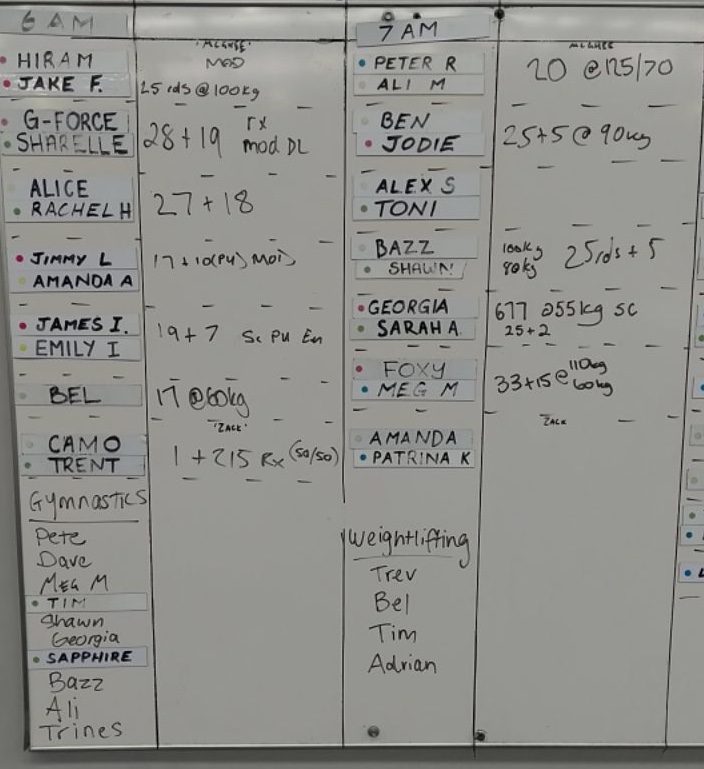 6 AM
'MCGHEE'
HIRAM MOD
JAKE F. 25 rds @ 100kg
G-FORCE rx
SHARELLE 28 + 19 mod DL
ALICE
RACHEL H 27 + 18
JIMMY L 17 + 10(PU) MOD
AMANDA A
JAMES I. 19 + 7 Sc PU
EMILY I
BEL 17 @60kg
'ZACK'
CAMO
TRENT 1 + 215 Rx (50/50)
Gymnastics
Pete
Dave
MEG M
TIM
Shawn
Georgia
SAPPHIRE
Bazz
Ali
Trines
7 AM
MCGHEE
PETER R 20 @125/70
ALI M
BEN
JODIE 25+5 @ 90kg
ALEX S
TONI
BAZZ 100kg 25rds + 5
SHAWN 80kg
GEORGIA 677 @55kg SC
SARAH A 25+2
FOXY 110kg
MEG M 33+15 @ 60kg
ZACK
AMANDA
PATRINA K
Weightlifting
Trev
Bel
Tim
Adrian